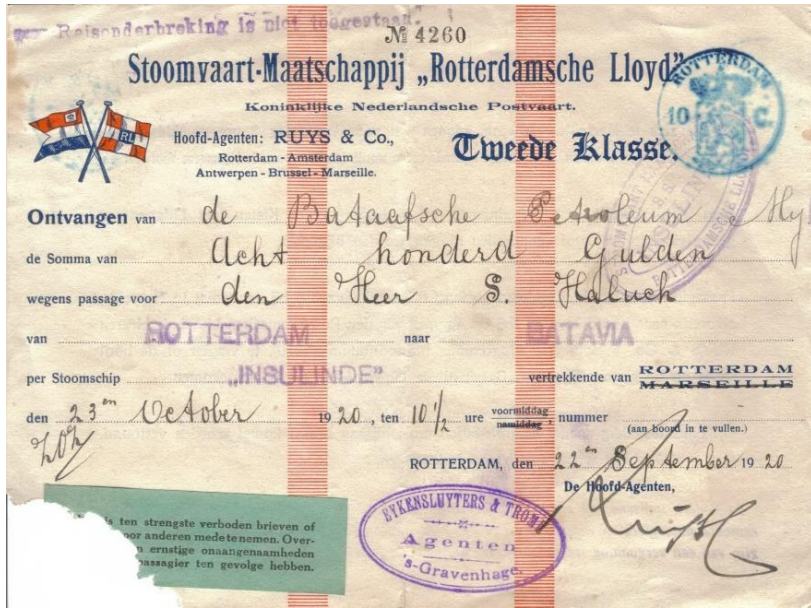 Reisonderbreking is niet toegestaan.
№ 4260
Stoomvaart-Maatschappij „Rotterdamsche Lloyd"
Koninklijke Nederlandsche Postvaart.
RL
Hoofd-Agenten: RUYS & Co.,
Rotterdam - Amsterdam
Antwerpen - Brussel - Marseille.
Tweede Klasse.
ROTTERDAM
10 C.
Ontvangen van de Bataafsche Petroleum Mij.
de Somma van Acht honderd Gulden
wegens passage voor den Heer S. Haluch
van ROTTERDAM naar BATAVIA
per Stoomschip „INSULINDE" vertrekkende van ROTTERDAM
MARSEILLE
den 23en October 1920, ten 10 1/2 ure voormiddag, nummer
namiddag
(aan boord in te vullen.)
ROTTERDAM, den 22en September 1920
De Hoofd-Agenten,
is ten strengste verboden brieven of
voor anderen mede te nemen. Over-
ernstige onaangenaamheden
passagier ten gevolge hebben.
EYKENSLUYTERS & TROM
Agenten
's-Gravenhage.